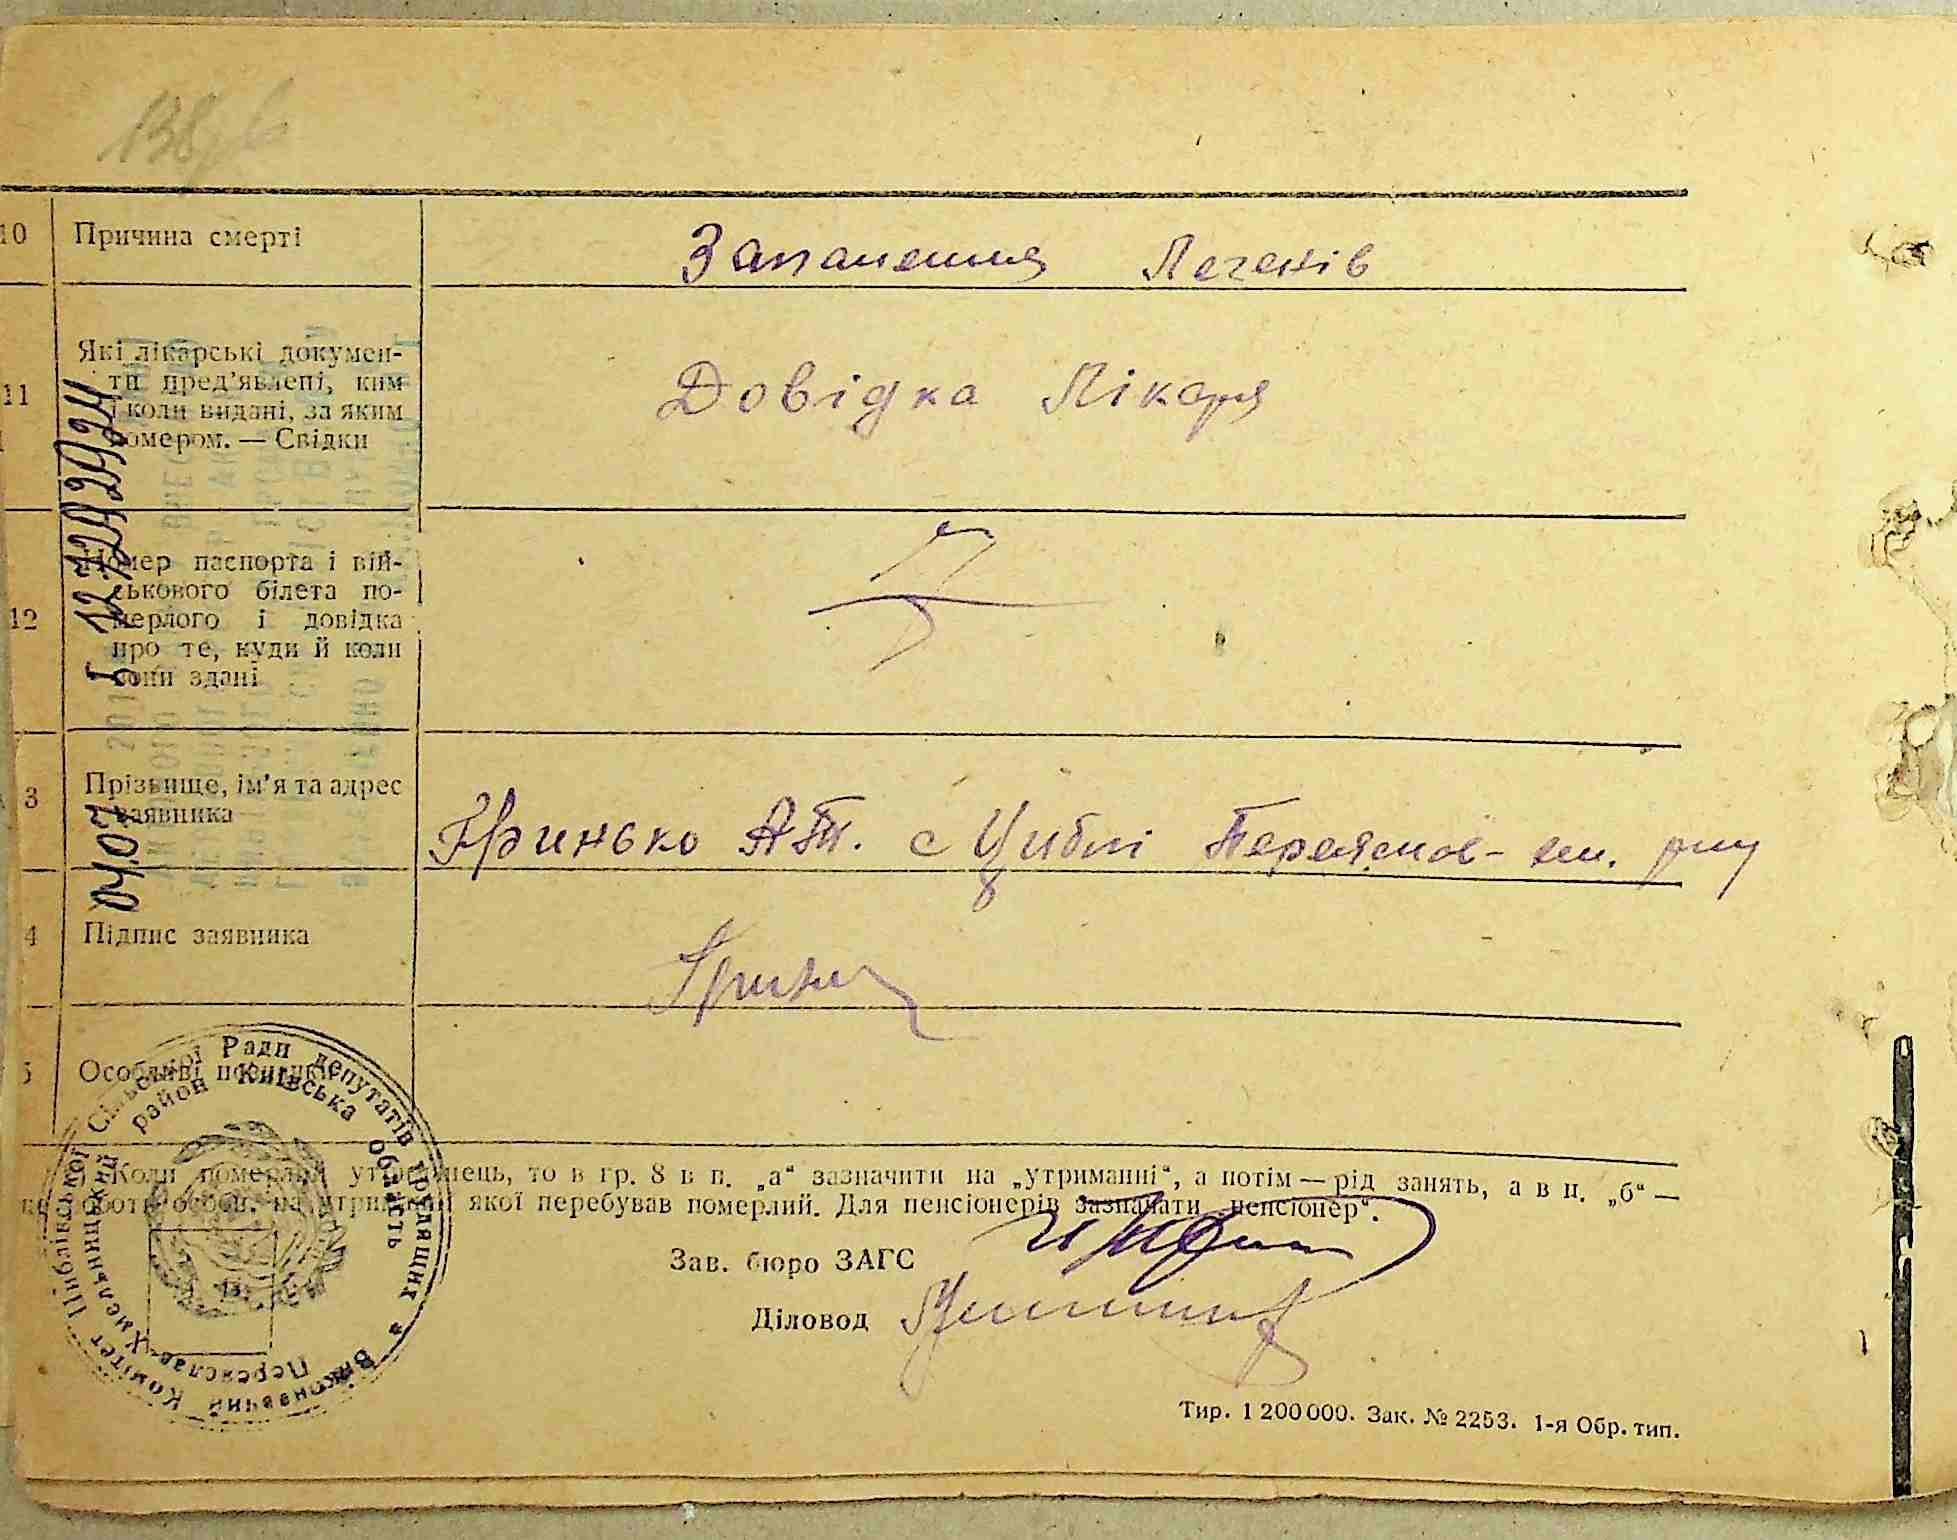 138
10 Причина смерті Запалення Легенів
11 Які лікарські докумен-
ти пред'явлені, ким
і коли видані, за яким
номером. — Свідки
Довідка Лікаря
12 Номер паспорта і вій-
ськового білета по-
мерлого і довідка
про те, куди й коли
вони здані
3 Прізвище, ім'я та адрес
заявника
Гринько А.Т. с Циблі Переяслов-
4 Підпис заявника
5 Особливі позначки
Коли померлий утриманець, то в гр. 8 в п. „а“ зазначити на „утриманні“, а потім — рід занять, а в п. „б“ —
роботи особи, на утриманні якої перебував померлий. Для пенсіонерів зазначати „пенсіонер“.
Зав. бюро ЗАГС
Діловод
Тир. 1 200 000. Зак. № 2253. 1-я Обр. тип.
Виконавчий Комітет Циблівської Сільської Ради депутатів трудящих *
Переяслав-Хмельницький район Київська область
04.07